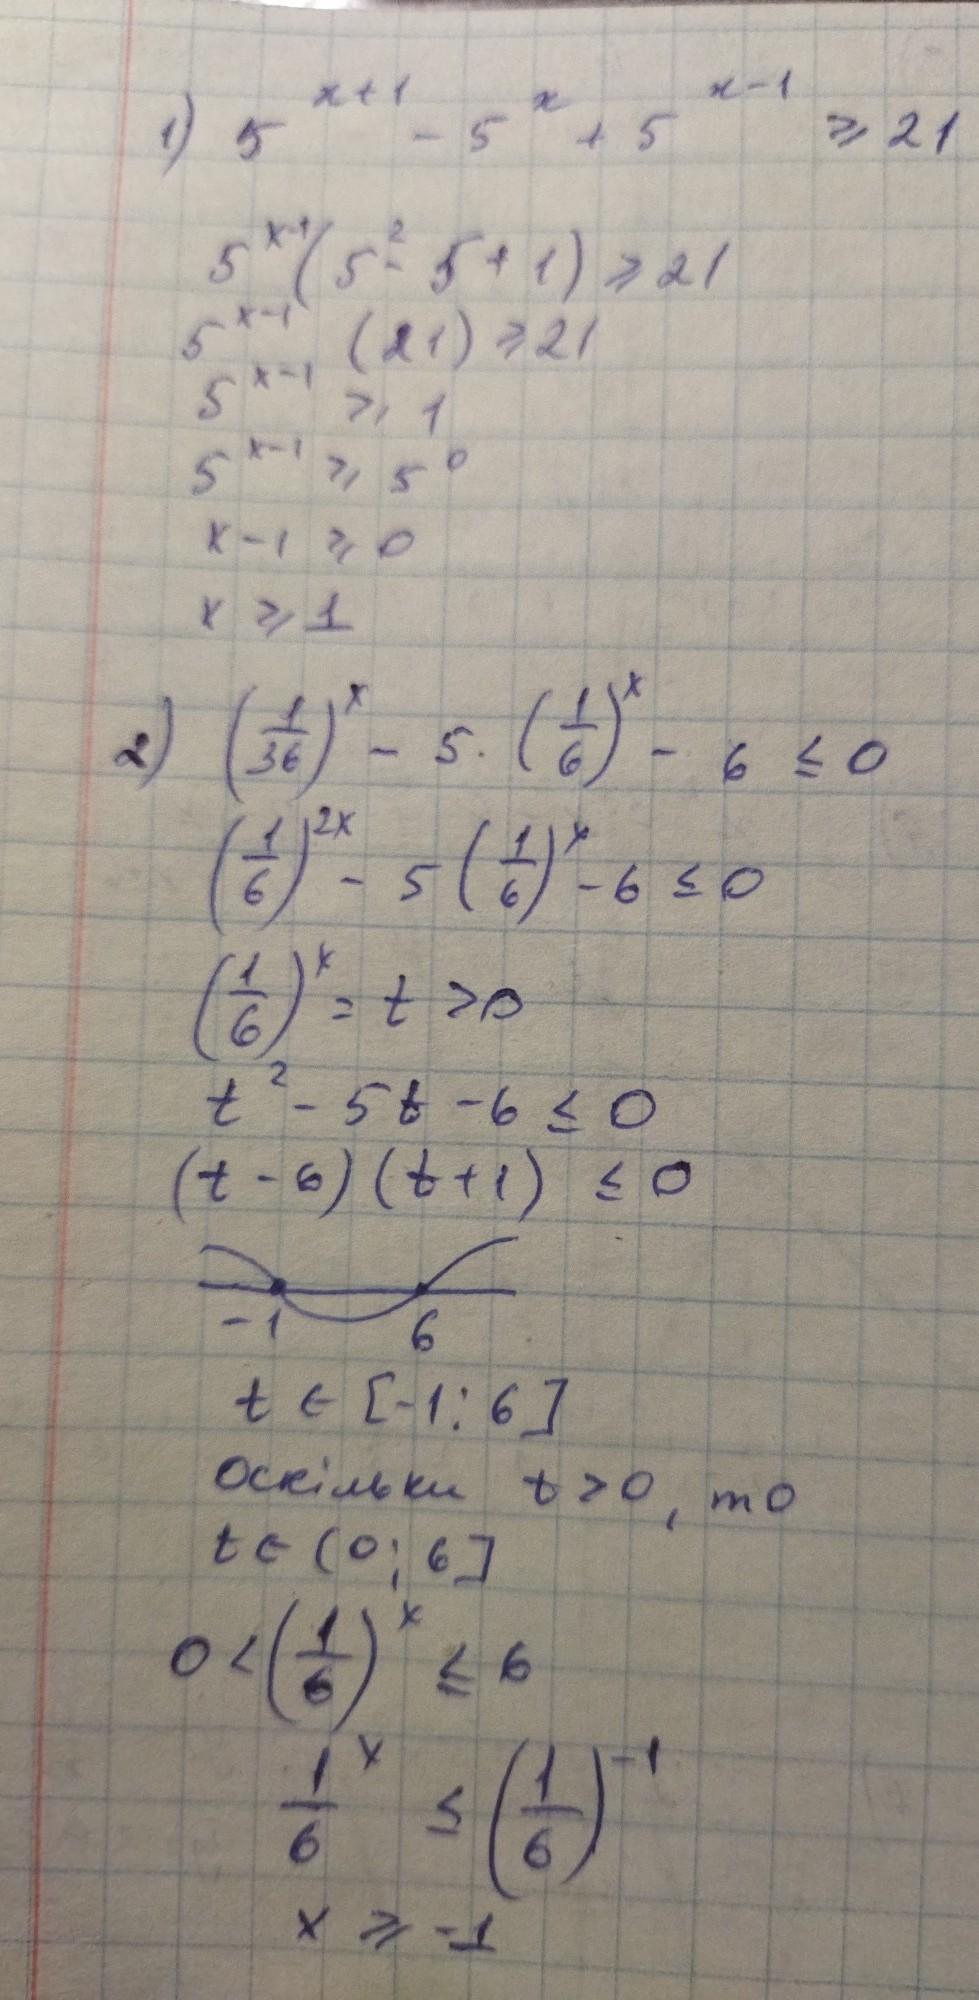 1) 5^{x+1} - 5^x + 5^{x-1} ≥ 21
5^{x-1} (5^2 - 5 + 1) ≥ 21
5^{x-1} (21) ≥ 21
5^{x-1} ≥ 1
5^{x-1} ≥ 5^0
x - 1 ≥ 0
x ≥ 1
2) (1/36)^x - 5 · (1/6)^x - 6 ≤ 0
(1/6)^{2x} - 5 (1/6)^x - 6 ≤ 0
(1/6)^x = t > 0
t^2 - 5t - 6 ≤ 0
(t - 6) (t + 1) ≤ 0
-1 6
t ∈ [-1; 6]
оскільки t > 0, то
t ∈ (0; 6]
0 < (1/6)^x ≤ 6
1/6^x ≤ (1/6)^{-1}
x ≥ -1